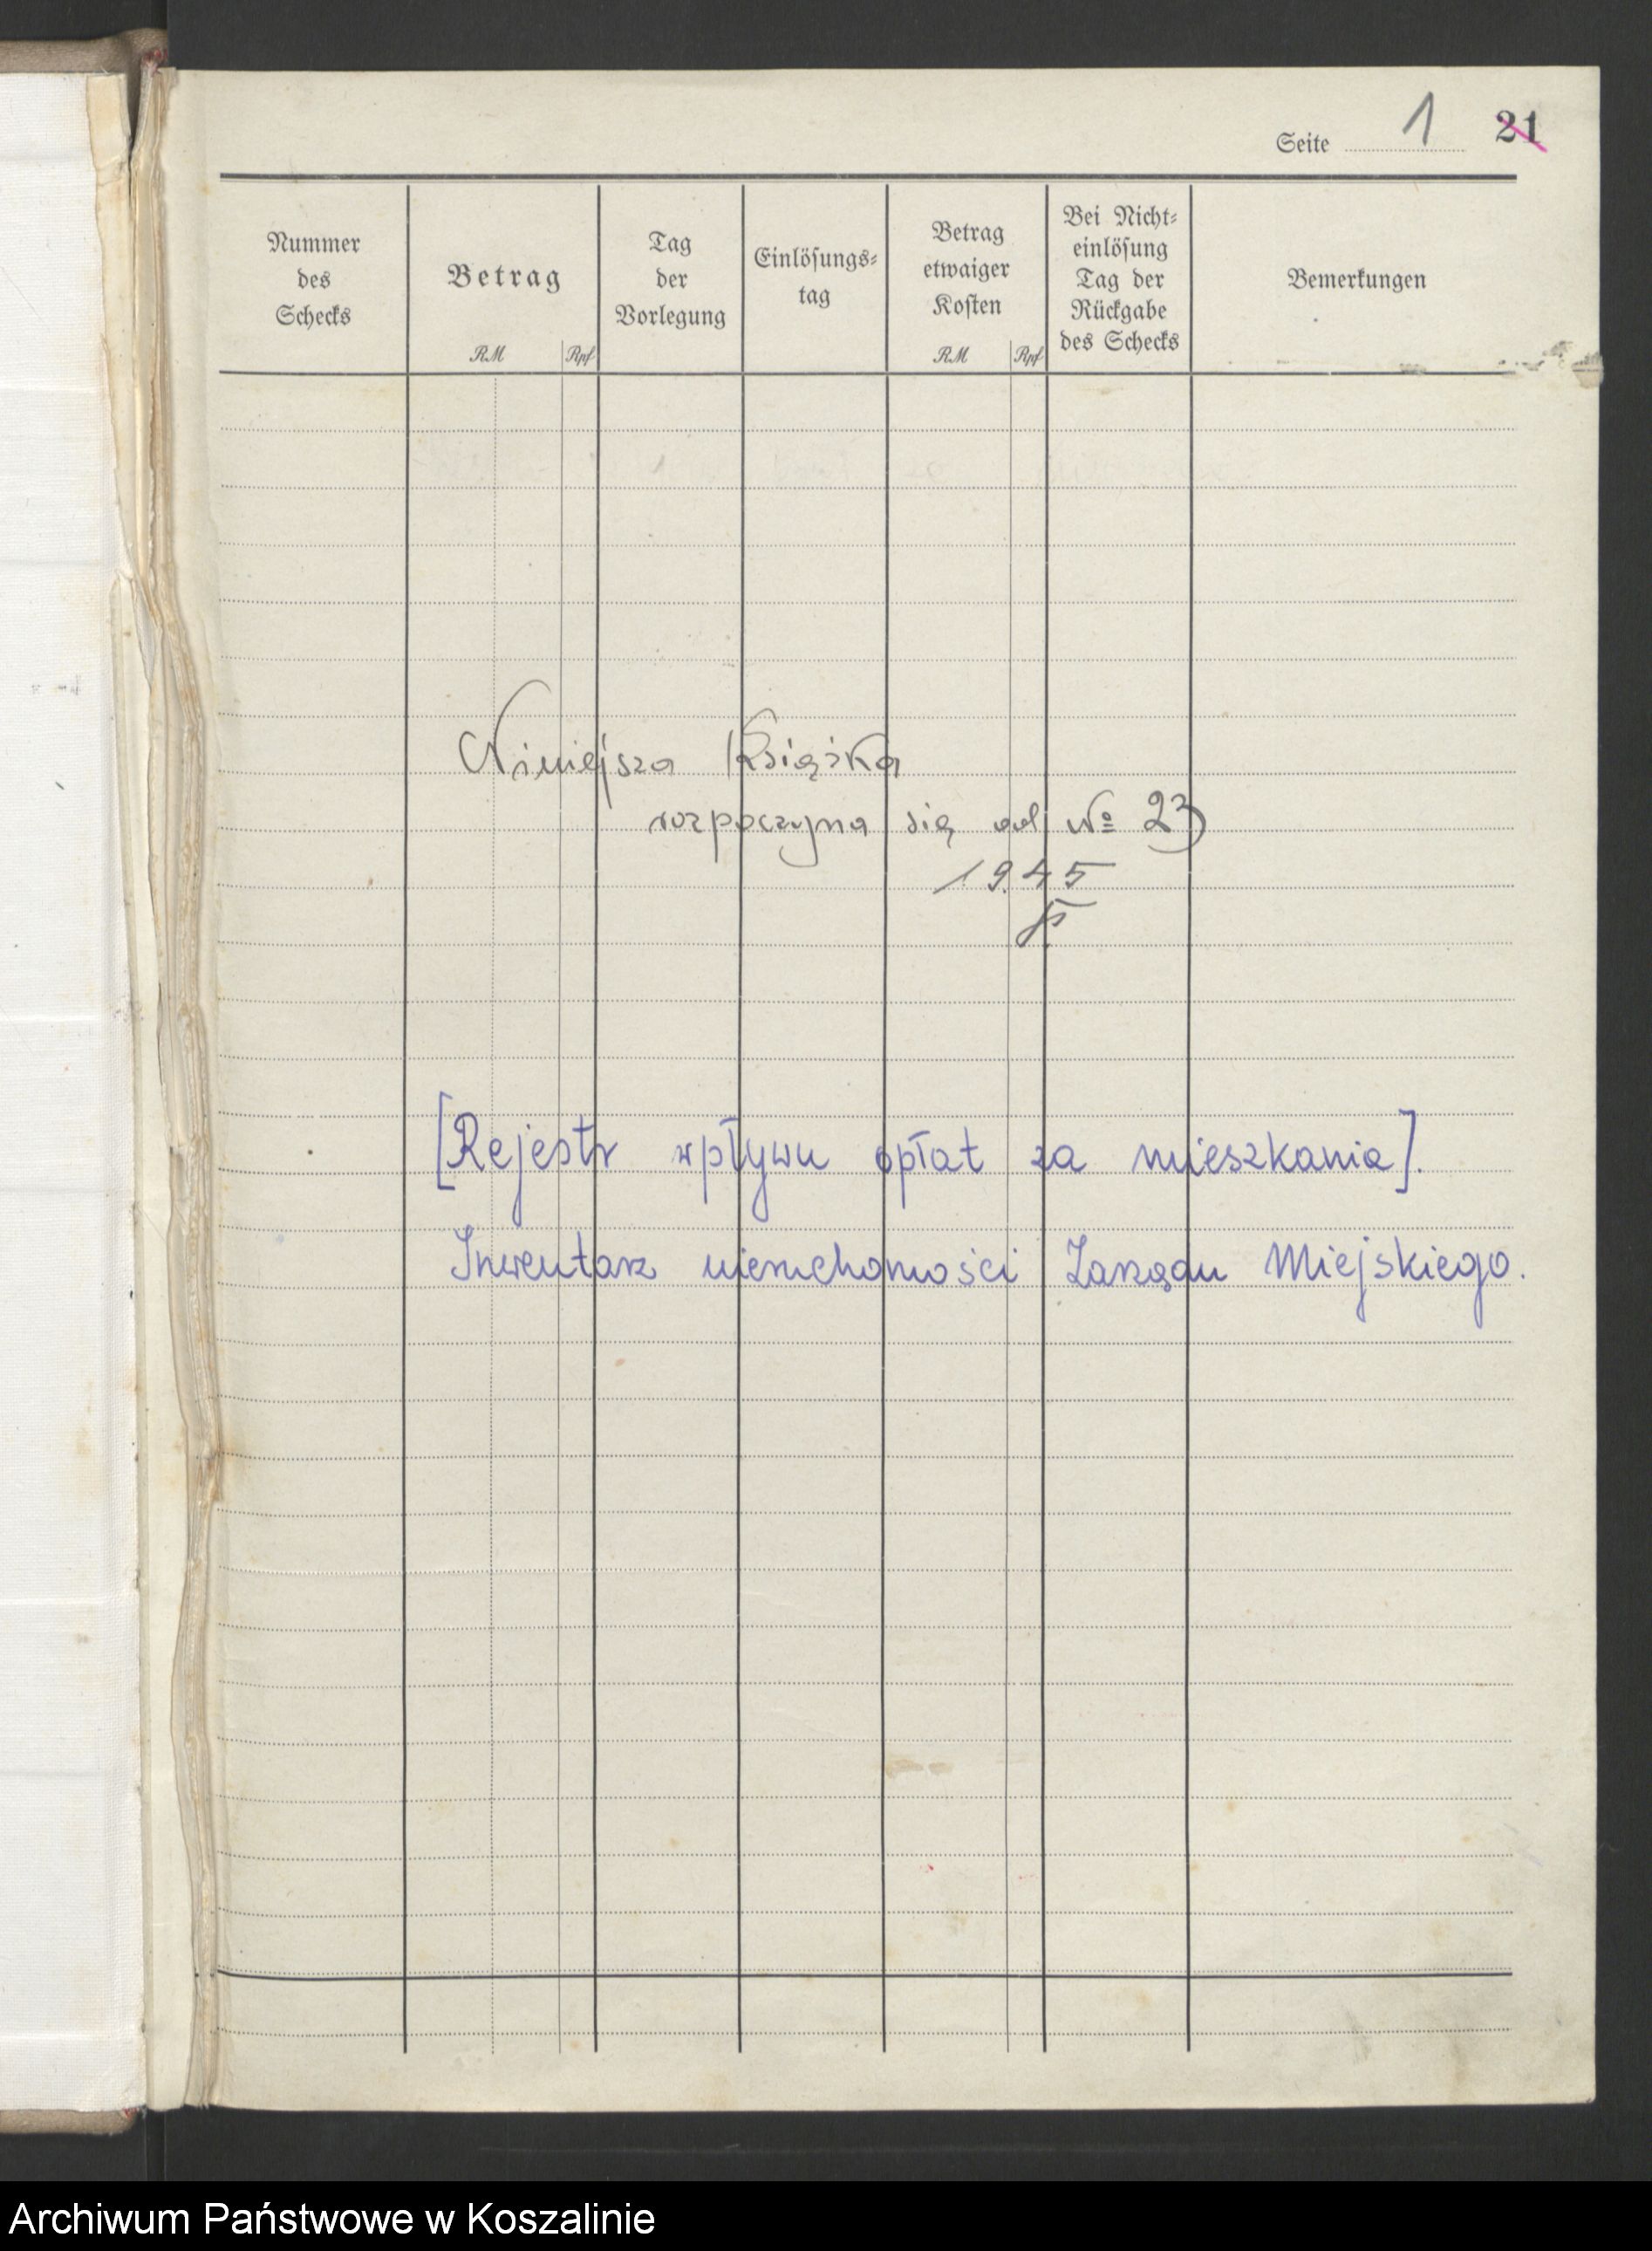 Seite 1 21
Nummer
des
Schecks
Betrag
RM Rpf
Tag
der
Vorlegung
Einlösungs-
tag
Betrag
etwaiger
Kosten
RM Rpf
Bei Nicht-
einlösung
Tag der
Rückgabe
des Schecks
Bemerkungen
Niniejsza Książka
rozpoczyna się od № 23
1945
[Rejestr wpływu opłat za mieszkania].
Inwentarz nieruchomości Zarządu Miejskiego.
Archiwum Państwowe w Koszalinie